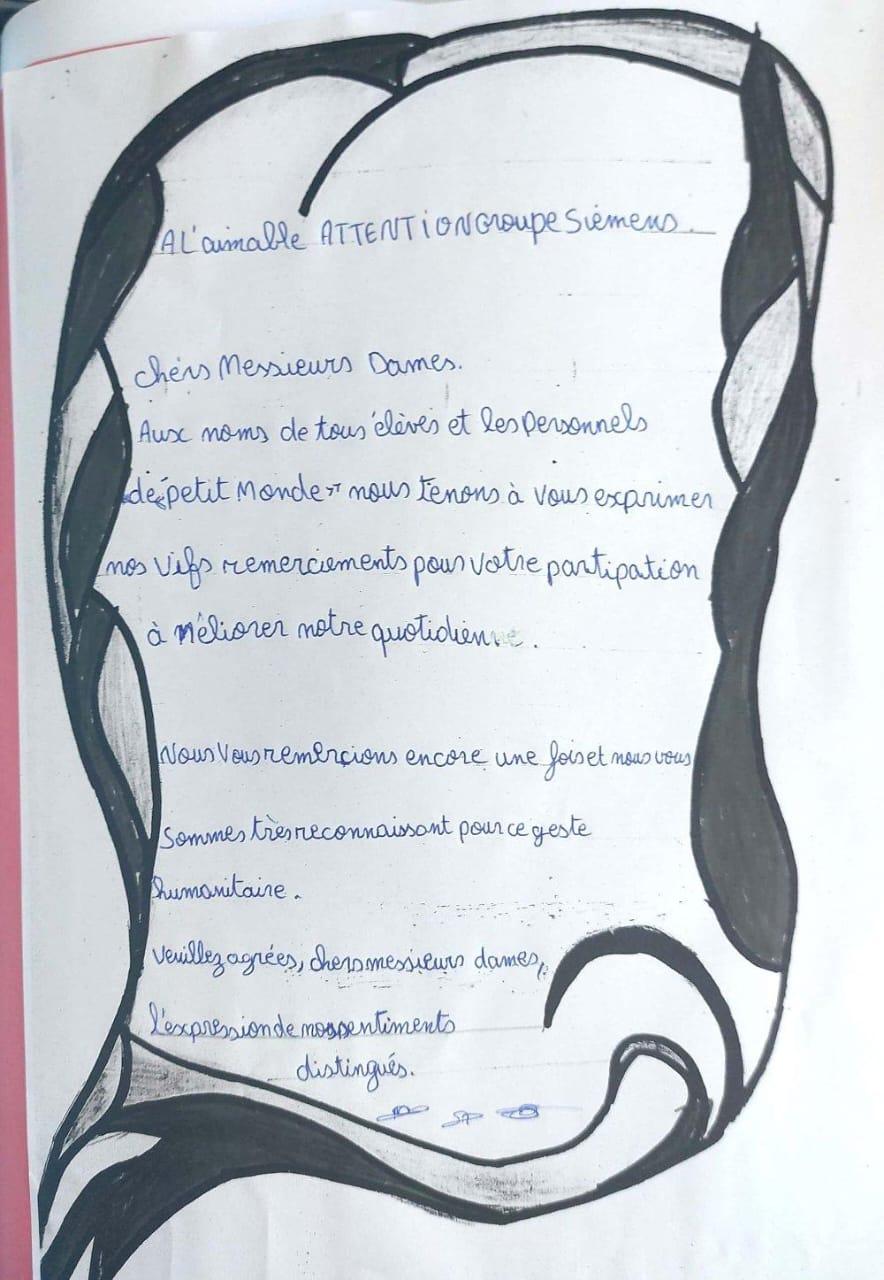 A L'aimable ATTENTION Groupe Sièmens.
chérs Messieurs Dames.
Aux noms de tous élèves et les personnels
de "petit Monde" nous tenons à vous exprimer
nos vifs remerciements pour votre partipation
à méliorer notre quotidienne.
Nous Vous remercions encore une fois et nous vous
sommes très reconnaissant pour ce geste
humanitaire.
Veuillez agrées, chers messieurs dames,
l'expression de nos sentiments
distingués.